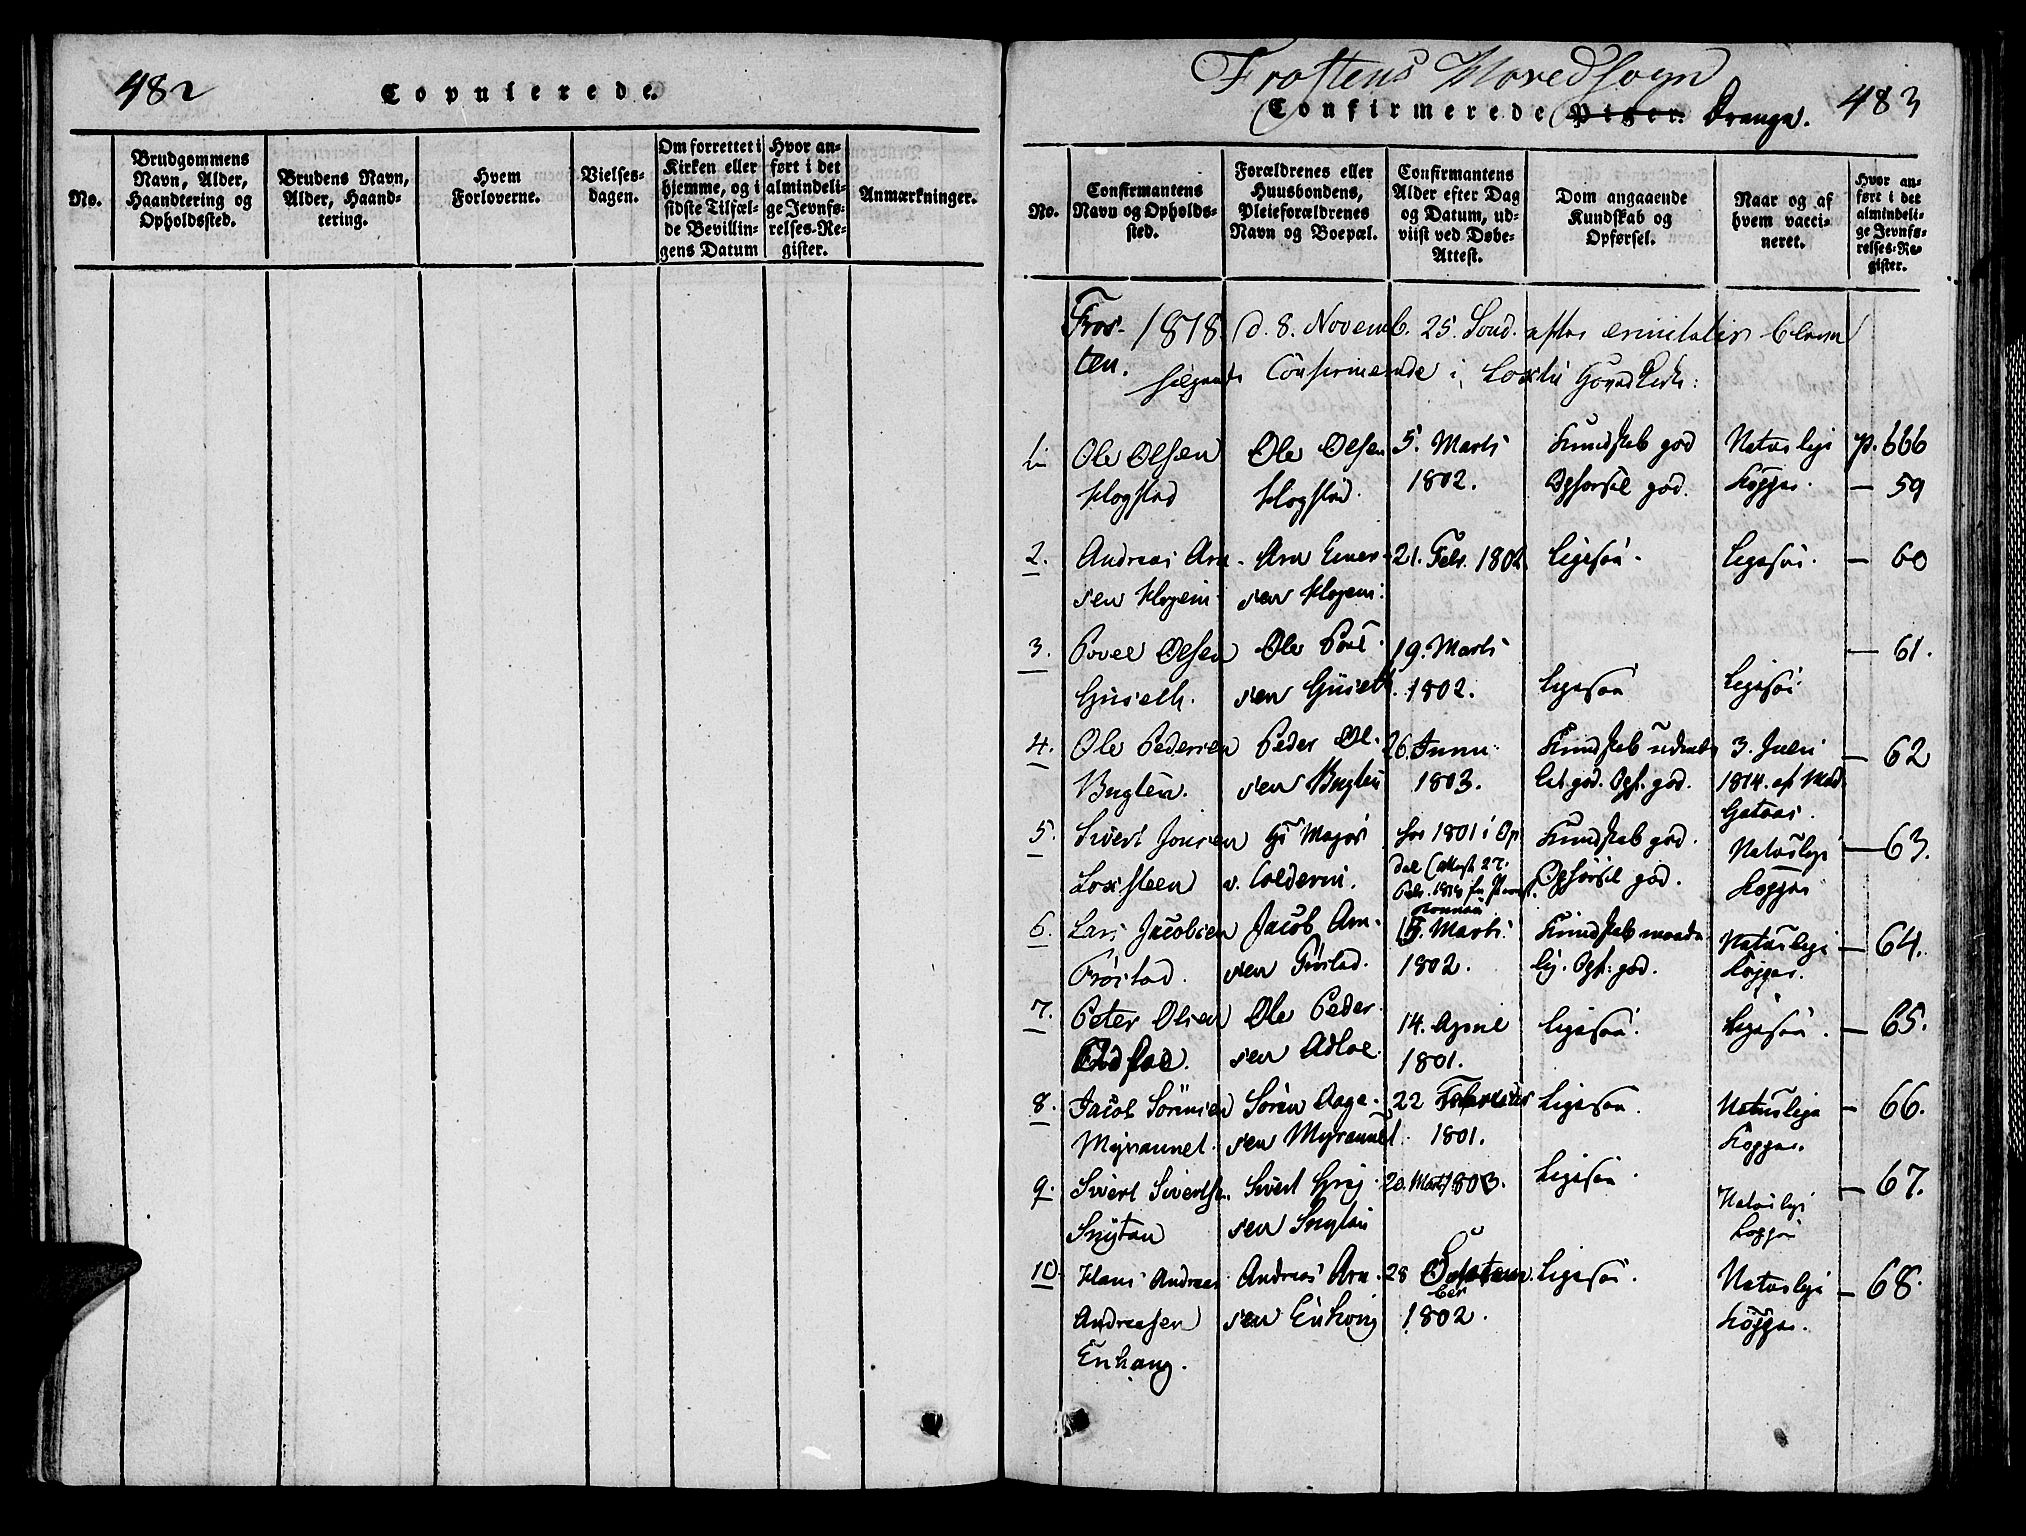 482
Copulerede.
No.
Brudgommens
Navn, Alder,
Haandtering og
Opholdssted.
Brudens Navn,
Alder, Haand-
tering.
Hvem
Forloverne.
Vielses-
dagen.
Om forrettet i
Kirken eller
hjemme, og i
sidste Tilfæl-
de Bevillin-
gens Datum
Hvor an-
ført i det
almindeli-
ge Jevnfø-
relses-Re-
gister.
Anmærkninger.
Frostens Hovedsogn
Confirmerede Piger. Drenge.
483
No.
Confirmantens
Navn og Opholds-
sted.
Forældrenes eller
Huusbondens,
Pleieforældrenes
Navn og Boepæl.
Confirmantens
Alder efter Dag
og Datum, ud-
viist ved Døbe-
Attest.
Dom angaaende
Kundskab og
Opførsel.
Naar og af
hvem vacci-
neret.
Hvor an-
ført i det
almindeli-
ge Jevnfø-
relses-Re-
gister.
Fros-
ten.
1818. d. 8. Novemb. 25. Sond. efter
Confirmerede i
1.
Ole Olsen
Hogstad
Ole Olsen
Hogstad.
5. Marts
1802.
Kundskab god
Opførsel god.
Naturlige
Kopper.
p. 666
— 59
2.
Andreas Arn-
sen
Arn
sen
21. Febr. 1802
Ligesaa.
Ligesaa.
— 60
3.
Povel Olsen
Ole Povel-
sen
19. Marts
1802.
Ligesaa
Ligesaa
— 61.
4.
Ole Pedersen
Peder Ol-
sen
26. Janu:
1803.
Kundskab
god. Opf. god.
3. Juli
1814. af Mad.
— 62
5.
Sivert Jonsen
Major
1801 i Op
dal
Kundskab god.
Opførsel god.
Naturlige
Kopper
— 63.
6.
Lars Jacobsen
Jacob Arn-
sen
Marts
1802.
Kundskab maade-
lig. Opf: god.
Naturlige
Kopper.
— 64.
7.
Peter Olsen
Ole Peder-
sen
14. April
1801.
Ligesaa.
Ligesaa.
— 65.
8.
Jacob Sörensen
Myrannet.
Sören Aage-
sen Myrannet
22 Februar
1801.
Ligesaa.
Naturlige
Kopper.
— 66.
9.
Sivert Sivertsen
Sivert
sen
20. Marts 1803.
Ligesaa.
Naturlige
Kopper
— 67.
10.
Hans Andreas
Andreasen
Andreas Arn-
sen
28 Septem-
ber
1802.
Ligesaa.
Naturlige
Kopper.
— 68.